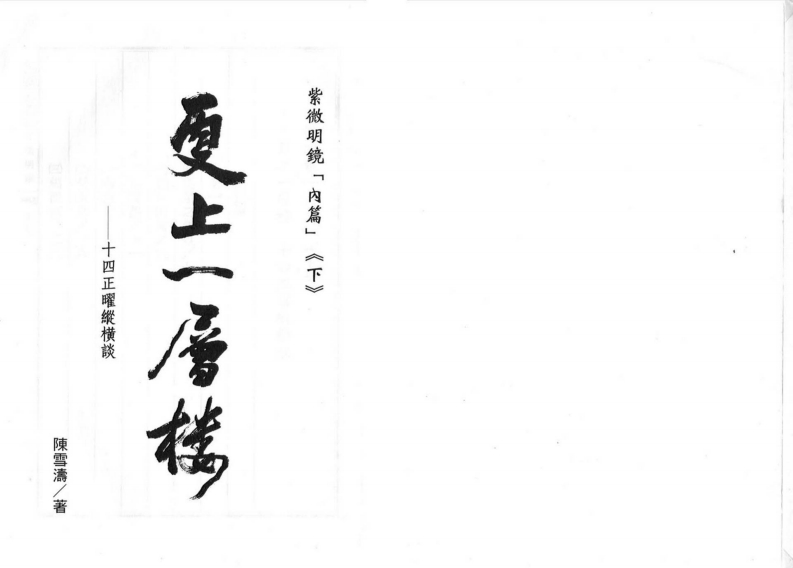 紫微明鏡「內篇」《下》
更上一層楼
——十四正曜縱橫談
陳雪濤／著